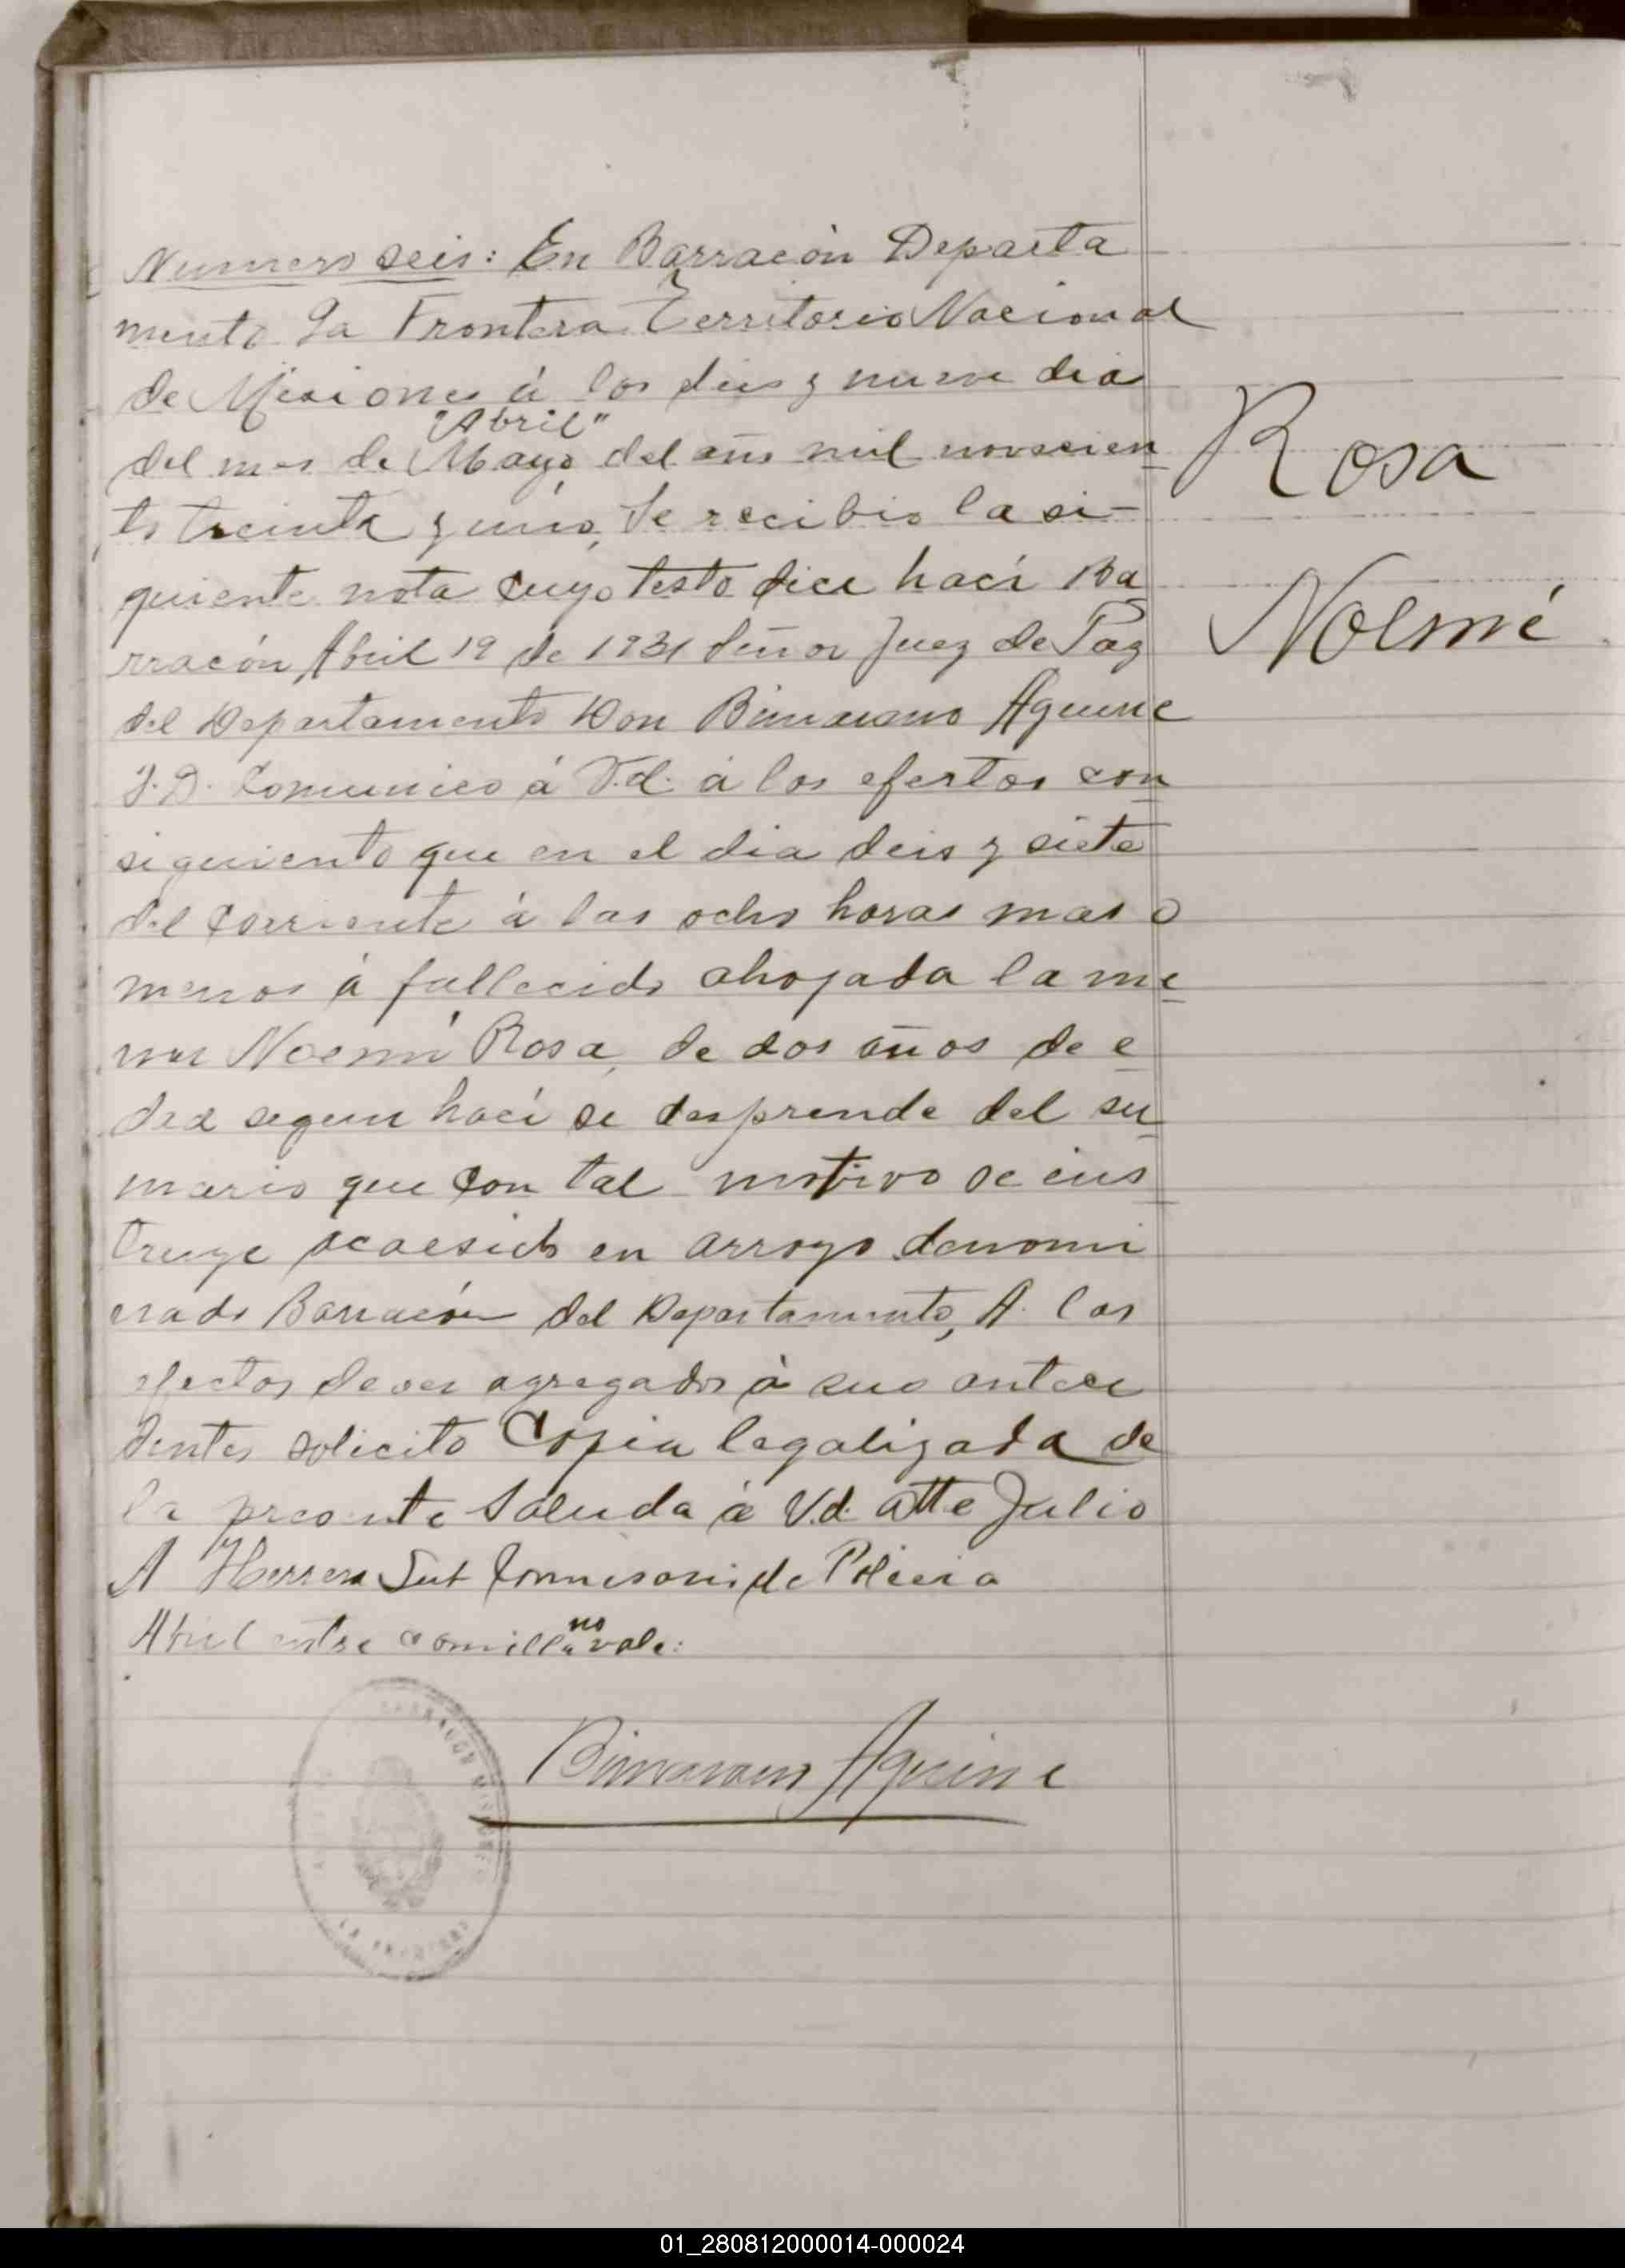 Numero seis: En Barracón Departa
mento La Frontera Territorio Nacional
de Misiones á los dies y nueve dia
"Abril"
del mes de Mayo, del año mil novecien
to treinta y uno, Se recibio la si-
guiente nota cuyo testo dice hací Ba
rracón Abril 19 de 1931 Señor Juez de Paz
del Departamento Don Bimarano Aguirre
S.D. Comunico á V.d. á los efectos con
siguiento que en el dia deis y siete
del corriente á las ocho horas mas o
menos á fallecido ahojada la me
nor Noemí Rosa, de dos años de e
dad segun hací se desprende del su
mario que con tal motivo se ins
truye acaesido en arroyo denomi
nado Barracón del Departamento, A los
efectos de ser agregados á sus antece
dentes solicito Copia legalizada de
la presente Saluda á V.d. atte Julio
A Herrera Sub Comisario de Policia
Abril entre comilla no vale:
Bimarano Aguirre
Rosa
Noemé
BARRACON MISIONES
LA FRONTERA
01_280812000014-000024